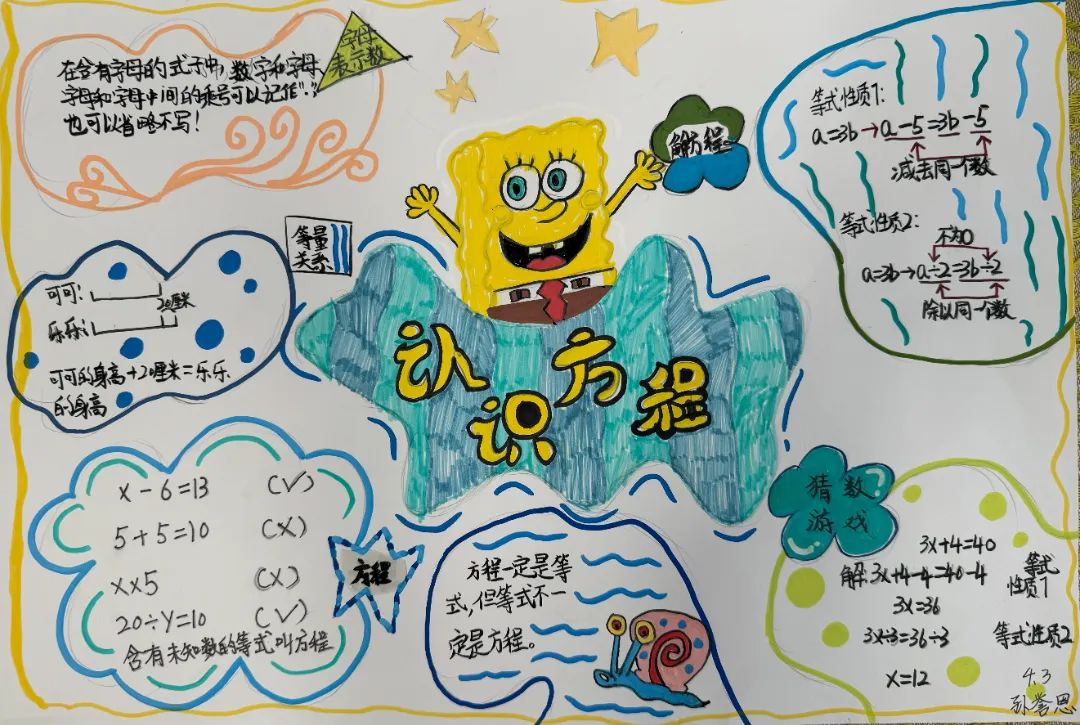 字母
表示数
在含有字母的式子中,数字和字母
字母和字母中间的乘号可以记作"."
也可以省略不写!
解方程
等式性质1:
a=3b→a-5=3b-5
减去同一个数
等式性质2:
不为0
a=3b→a÷2=3b÷2
除以同一个数
等量
关系
可可:
20厘米
乐乐:
可可的身高+20厘米=乐乐
的身高
认识方程
x-6=13 (√)
5+5=10 (×)
x×5 (×)
20÷y=10 (√)
含有未知数的等式叫方程
方程
方程一定是等
式,但等式不一
定是方程。
猜数
游戏
3x+4=40
解 3x+4-4=40-4 等式
性质1
3x=36
3x÷3=36÷3 等式性质2
x=12
4.3
孙誉恩